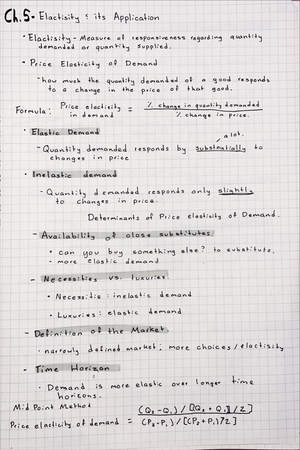 Ch.5- Elactisity & its Application
· Elactisity- Measure of responsiveness regarding quantity
demanded or quantity supplied.
- Price Elasticity of Demand
- how much the quantity demanded of a good responds
to a change in the price of that good.
Formula: Price elacticity in demand = % change in quantity demanded / % change in price.
· Elastic Demand
a lot.
- Quantity demanded responds by substantially to
changes in price
· Inelastic demand
- Quantity demanded responds only slightly
to changes in price.
Determinants of Price elasticity of Demand.
- Availability of close substitutes
· can you buy something else? to substitute.
· more elastic demand
- Necessities vs. luxuries.
· Necessitie: inelastic demand
· Luxuries: elastic demand
- Definition of the Market
· narrowly defined market: more choices/elactisity
- Time Horizon
· Demand is more elastic over longer time
horizons.
Mid Point Method
Price elacticity of demand = (Q2 - Q1) / [(Q2 + Q1)/2] / (P2 - P1) / [(P2 + P1)/2]